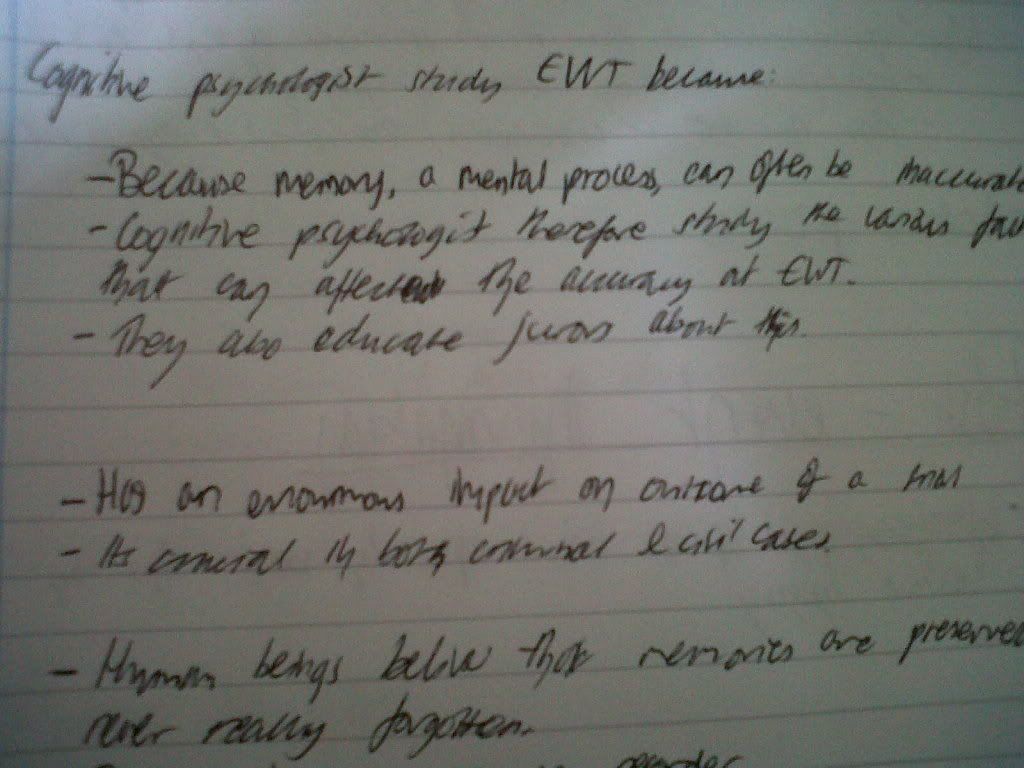 Cognitive psychologist study EWT because:
- Because memory, a mental process, can often be inaccurate
- Cognitive psychologist therefore study the various
that can affect the accuracy at EWT.
- They also educate jurors about this.
- Has an enormous impact on outcome of a trial
- Its crucial in both criminal & civil cases.
- Human beings belive that memories are preserved
never really forgotten.
recorder